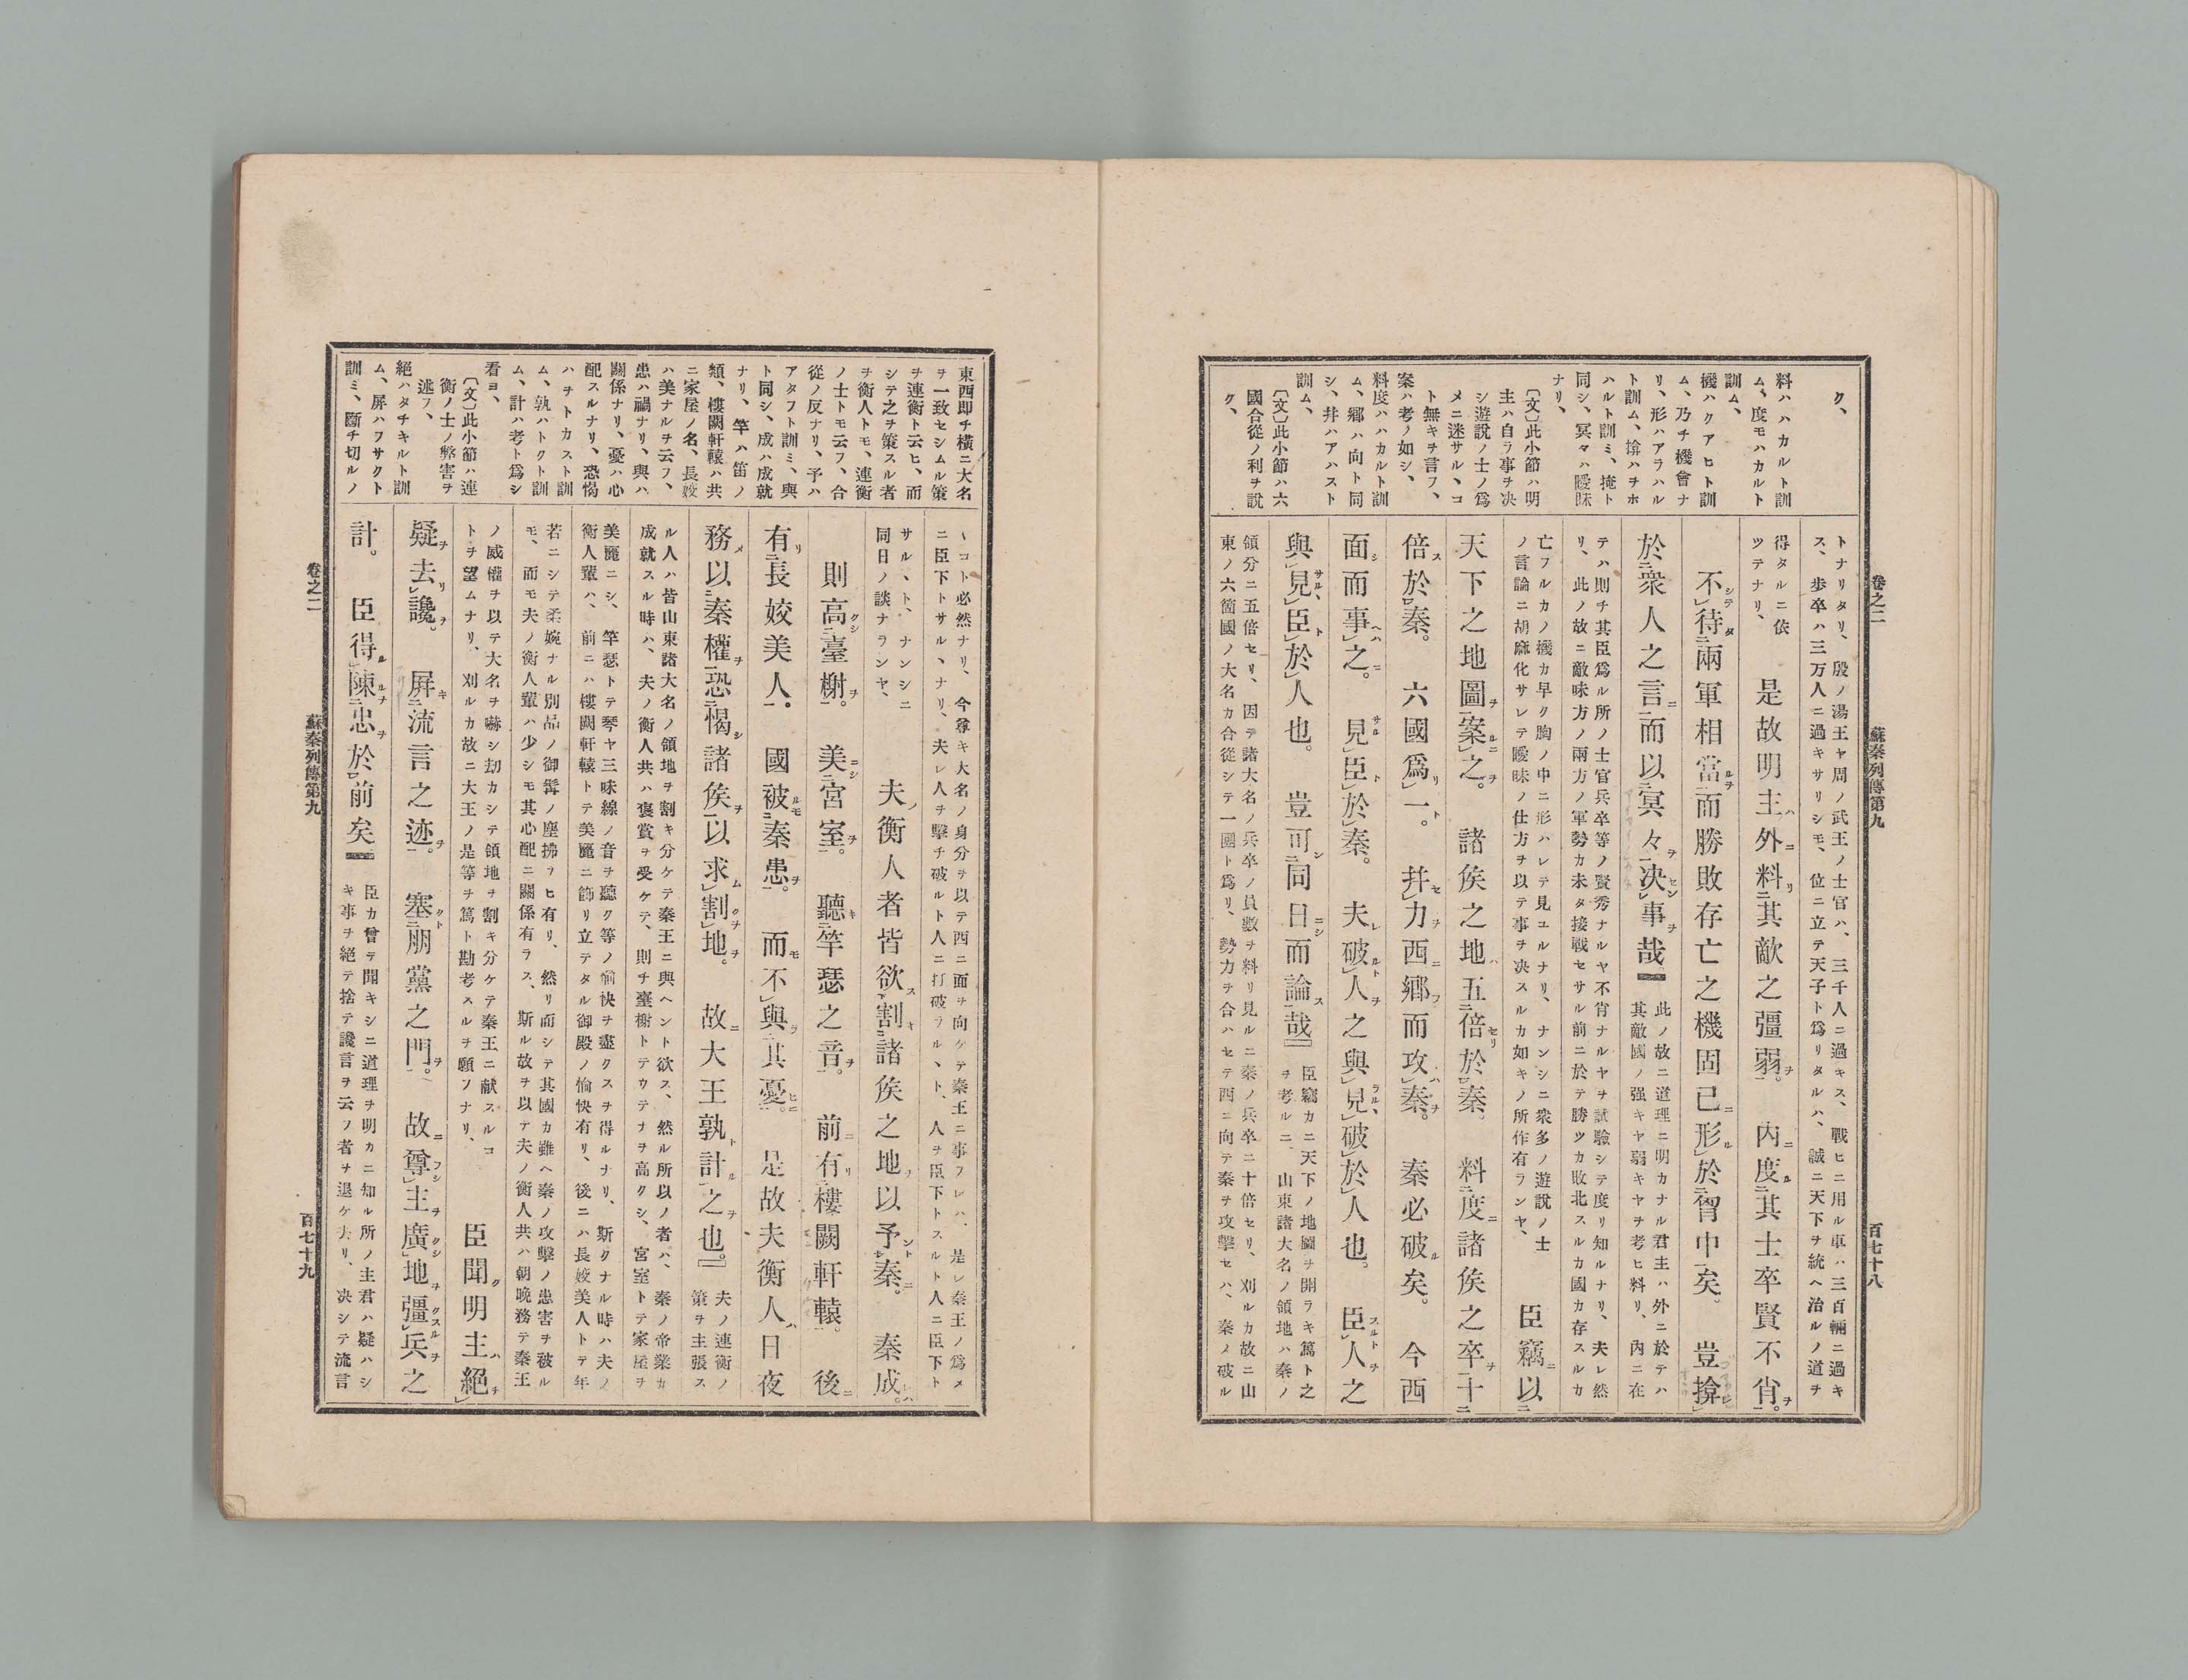 卷之二　蘇秦列傳第九　百七十八
ク、
料ハハカルト訓
ム、度モハカルト
訓ム、
機ハクアヒト訓
ム、乃チ機會ナ
リ、形ハアラハル
ト訓ム、揜ハチホ
ハルト訓ミ、掩ト
同シ、冥々ハ曖昧
ナリ、
〔文〕此小節ハ明
主ハ自ラ事ヲ决
シ遊說ノ士ノ爲
メニ迷サル丶コ
ト無キヲ言フ、
案ハ考ノ如シ、
料度ハハカルト訓
ム、鄕ハ向ト同
シ、幷ハアハスト
訓ム、
〔文〕此小節ハ六
國合從ノ利ヲ說
ク、
トナリタリ、殷ノ湯王ヤ周ノ武王ノ士官ハ、三千人ニ過キス、戰ヒニ用ル車ハ三百輛ニ過キ
ス、步卒ハ三万人ニ過キサリシモ、位ニ立テ天子ト爲リタルハ、誠ニ天下ヲ統ヘ治ルノ道ヲ
得タルニ依
ツテナリ、
是故明主ハ外ニ料リ二其敵之彊弱ヲ一。內ニ度ル二其士卒賢不肖ヲ一。
不シテレ待タ二兩軍相當ルヲ一而勝敗存亡之機固已ニ形ル二於胷中一矣。豈揜レ
於二衆人之言ニ一而以二冥々ヲ一决センレ事ヲ哉。
此ノ故ニ道理ニ明カナル君主ハ外ニ於テハ
其敵國ノ强キヤ弱キヤヲ考ヒ料リ、內ニ在
テハ則チ其臣爲ル所ノ士官兵卒等ノ賢秀ナルヤ不肖ナルヤヲ試驗シテ度リ知ルナリ、夫レ然
リ、此ノ故ニ敵味方ノ兩方ノ軍勢カ未タ接戰セサル前ニ於テ勝ツカ敗北スルカ國カ存スルカ
亡フルカノ機カ早ク胸ノ中ニ形ハレテ見ユルナリ、ナンシニ衆多ノ遊說ノ士
ノ言論ニ胡麻化サレテ曖昧ノ仕方ヲ以テ事ヲ决スルカ如キノ所作有ランヤ、
臣竊ニ以二
天下之地圖ヲ一案ルニレ之ヲ。諸侯之地ハ五二倍セリ於秦一。料二度ニ諸侯之卒ヲ一十二
倍ス於秦一。六國爲リレ一ト。幷セレ力ヲ西ニ鄕フ而攻ハレ秦ヲ。秦必破ル矣。今西
面シ而事ヘハレ之ニ。見サルレ臣トレ於秦。夫レ破ルトレ人ヲ之與レ見ラル丶レ破レ於人也。臣スルトレ人ヲ之
與レ見サル丶レ臣トレ於人也。豈可シ二同日ニシ而論ス一哉』
臣竊カニ天下ノ地圖ヲ開ラキ篤ト之
ヲ考ルニ、山東諸大名ノ領地ハ秦ノ
領分ニ五倍セリ、因テ諸大名ノ兵卒ノ員數ヲ料リ見ルニ秦ノ兵卒ニ十倍セリ、刈ルカ故ニ山
東ノ六箇國ノ大名カ合從シテ一團ト爲リ、勢力ヲ合ハセテ西ニ向テ秦ヲ攻擊セハ、秦ノ破ル
東西卽チ橫ニ大名
ヲ一致セシムル策
ヲ連衡ト云ヒ、而
シテ之ヲ策スル者
ヲ衡人トモ、連衡
ノ士トモ云フ、合
從ノ反ナリ、予ハ
アタフト訓ミ、與
ト同シ、成ハ成就
ナリ、竿ハ笛ノ
類、樓闕軒轅ハ共
ニ家屋ノ名、長姣
ハ美ナルヲ云フ、
患ハ禍ナリ、與ハ
關係ナリ、憂ハ心
配スルナリ、恐愒
ハヲトカスト訓
ム、孰ハトクト訓
ム、計ハ考ト爲シ
看ヨ、
〔文〕此小節ハ連
衡ノ士ノ弊害ヲ
述フ、
絕ハタチキルト訓
ム、屏ハフサクト
訓ミ、斷チ切ルノ
丶コト必然ナリ、今尊キ大名ノ身分ヲ以テ西ニ面ヲ向ケテ秦王ニ事フレハ、是レ秦王ノ爲メ
ニ臣下トサル丶ナリ、夫レ人ヲ擊チ破ルト人ニ打破ラル丶ト、人ヲ臣下トスルト人ニ臣下ト
サル丶ト、ナンシニ
同日ノ談ナランヤ、
夫ノ衡人者皆欲ス下割キ二諸侯之地ヲ一以予ント上レ秦ニ。秦成レハ。
則高クシ二臺榭ヲ一。美ニシ二宮室ヲ一。聽キ二竽瑟之音ヲ一。前ニ有リ二樓闕軒轅一。後ニ
有リ二長姣美人一。國被ルモ二秦患ヲ一。而モ不レ與ラ二其憂ヒニ一。是故夫衡人ハ日夜
務メ以二秦權ヲ一恐二愒シ諸侯ヲ一以求ムレ割クヲレ地ヲ。故ニ大王孰ト計ルレ之ヲ也。』
夫ノ連衡ノ
策ヲ主張ス
ル人ハ皆山東諸大名ノ領地ヲ割キ分ケテ秦王ニ與ヘント欲ス、然ル所以ノ者ハ、秦ノ帝業カ
成就スル時ハ、夫ノ衡人共ハ褒賞ヲ受ケテ、則チ臺榭トテウテナヲ高クシ、宮室トテ家屋ヲ
美麗ニシ、竿瑟トテ琴ヤ三味線ノ音ヲ聽ク等ノ愉快ヲ盡クスヲ得ルナリ、斯クナル時ハ夫ノ
衡人輩ハ、前ニハ樓闕軒轅トテ美麗ニ飾リ立テタル御殿ノ愉快有リ、後ニハ長姣美人トテ年
若ニシテ柔婉ナル別品ノ御髯ノ塵拂ヒ有リ、然リ而シテ其國カ雖ヘ秦ノ攻擊ノ患害ヲ被ル
モ、而モ夫ノ衡人輩ハ少シモ其心配ニ關係有ラス、斯ル故ヲ以テ夫ノ衡人共ハ朝晚務テ秦王
ノ威權ヲ以テ大名ヲ嚇シ刧カシテ領地ヲ割キ分ケテ秦王ニ献スルコ
トヲ望ムナリ、刈ルカ故ニ大王ノ是等ヲ篤ト勘考スルヲ願フナリ、
臣聞ク明主ハ絕チレ
疑ヲ去リレ讒ヲ。屏キ二流言之迹ヲ一。塞クト二朋黨之門ヲ一。故ニ尊フシレ主ヲ廣クシレ地ヲ彊クスルレ兵ヲ之
計。臣得ルレ陳ルヲ二忠ヲ於前一矣
臣カ曾テ聞キシニ道理ヲ明カニ知ル所ノ主君ハ疑ハシ
キ事ヲ絕テ捨テ讒言ヲ云フ者ヲ退ケ去リ、决シテ流言
卷之二　蘇秦列傳第九　百七十九